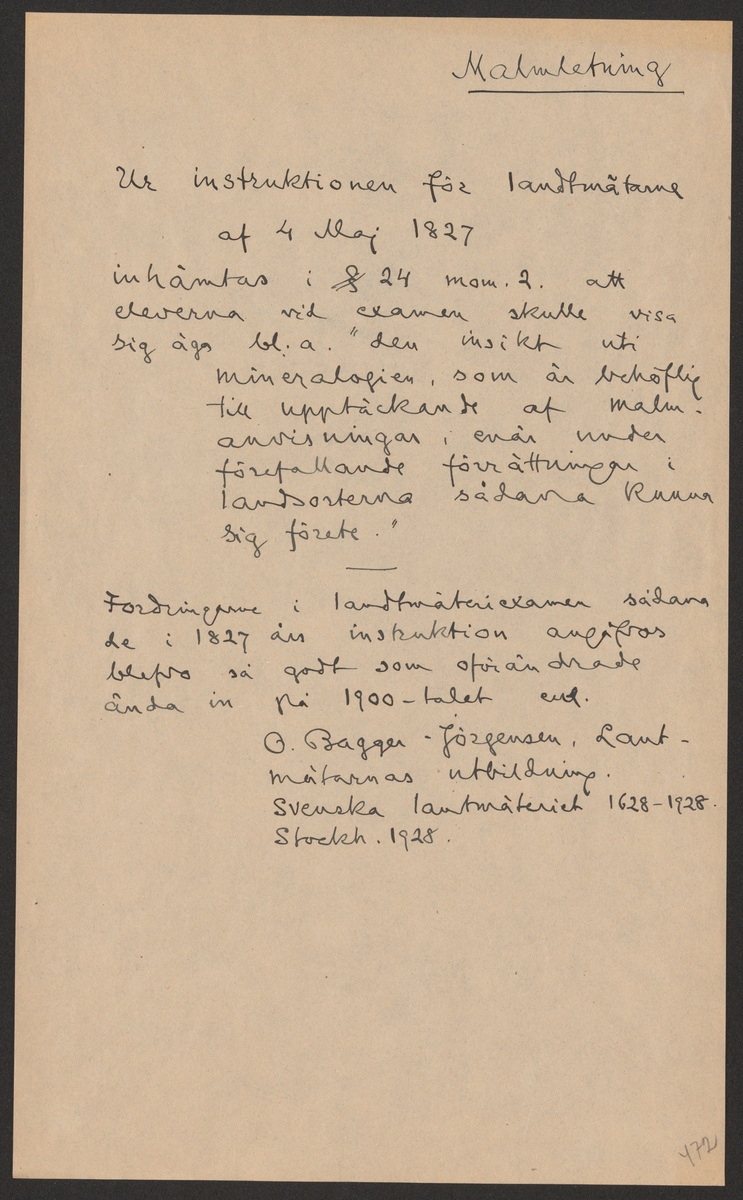 Malmletning
Ur instruktionen för landtmätarne
af 4 Maj 1827
inhämtas i § 24 mom. 2. att
eleverna vid examen skulle visa
sig äga bl. a. "den insikt uti
mineralogien, som är behöflig
till upptäckande af malm-
anvisningar, enär under
förefallande förrättningar i
landsorterna sådana kunna
sig förete."
Fordringarne i landtmäteriexamen sådana
de i 1827 års instruktion angåfvos
blefvo så godt som oförändrade
ända in på 1900-talet enl.
O. Bagger-Jörgensen, Lant-
mätarnas utbildning.
Svenska lantmäteriet 1628-1928.
Stockh. 1928.
472